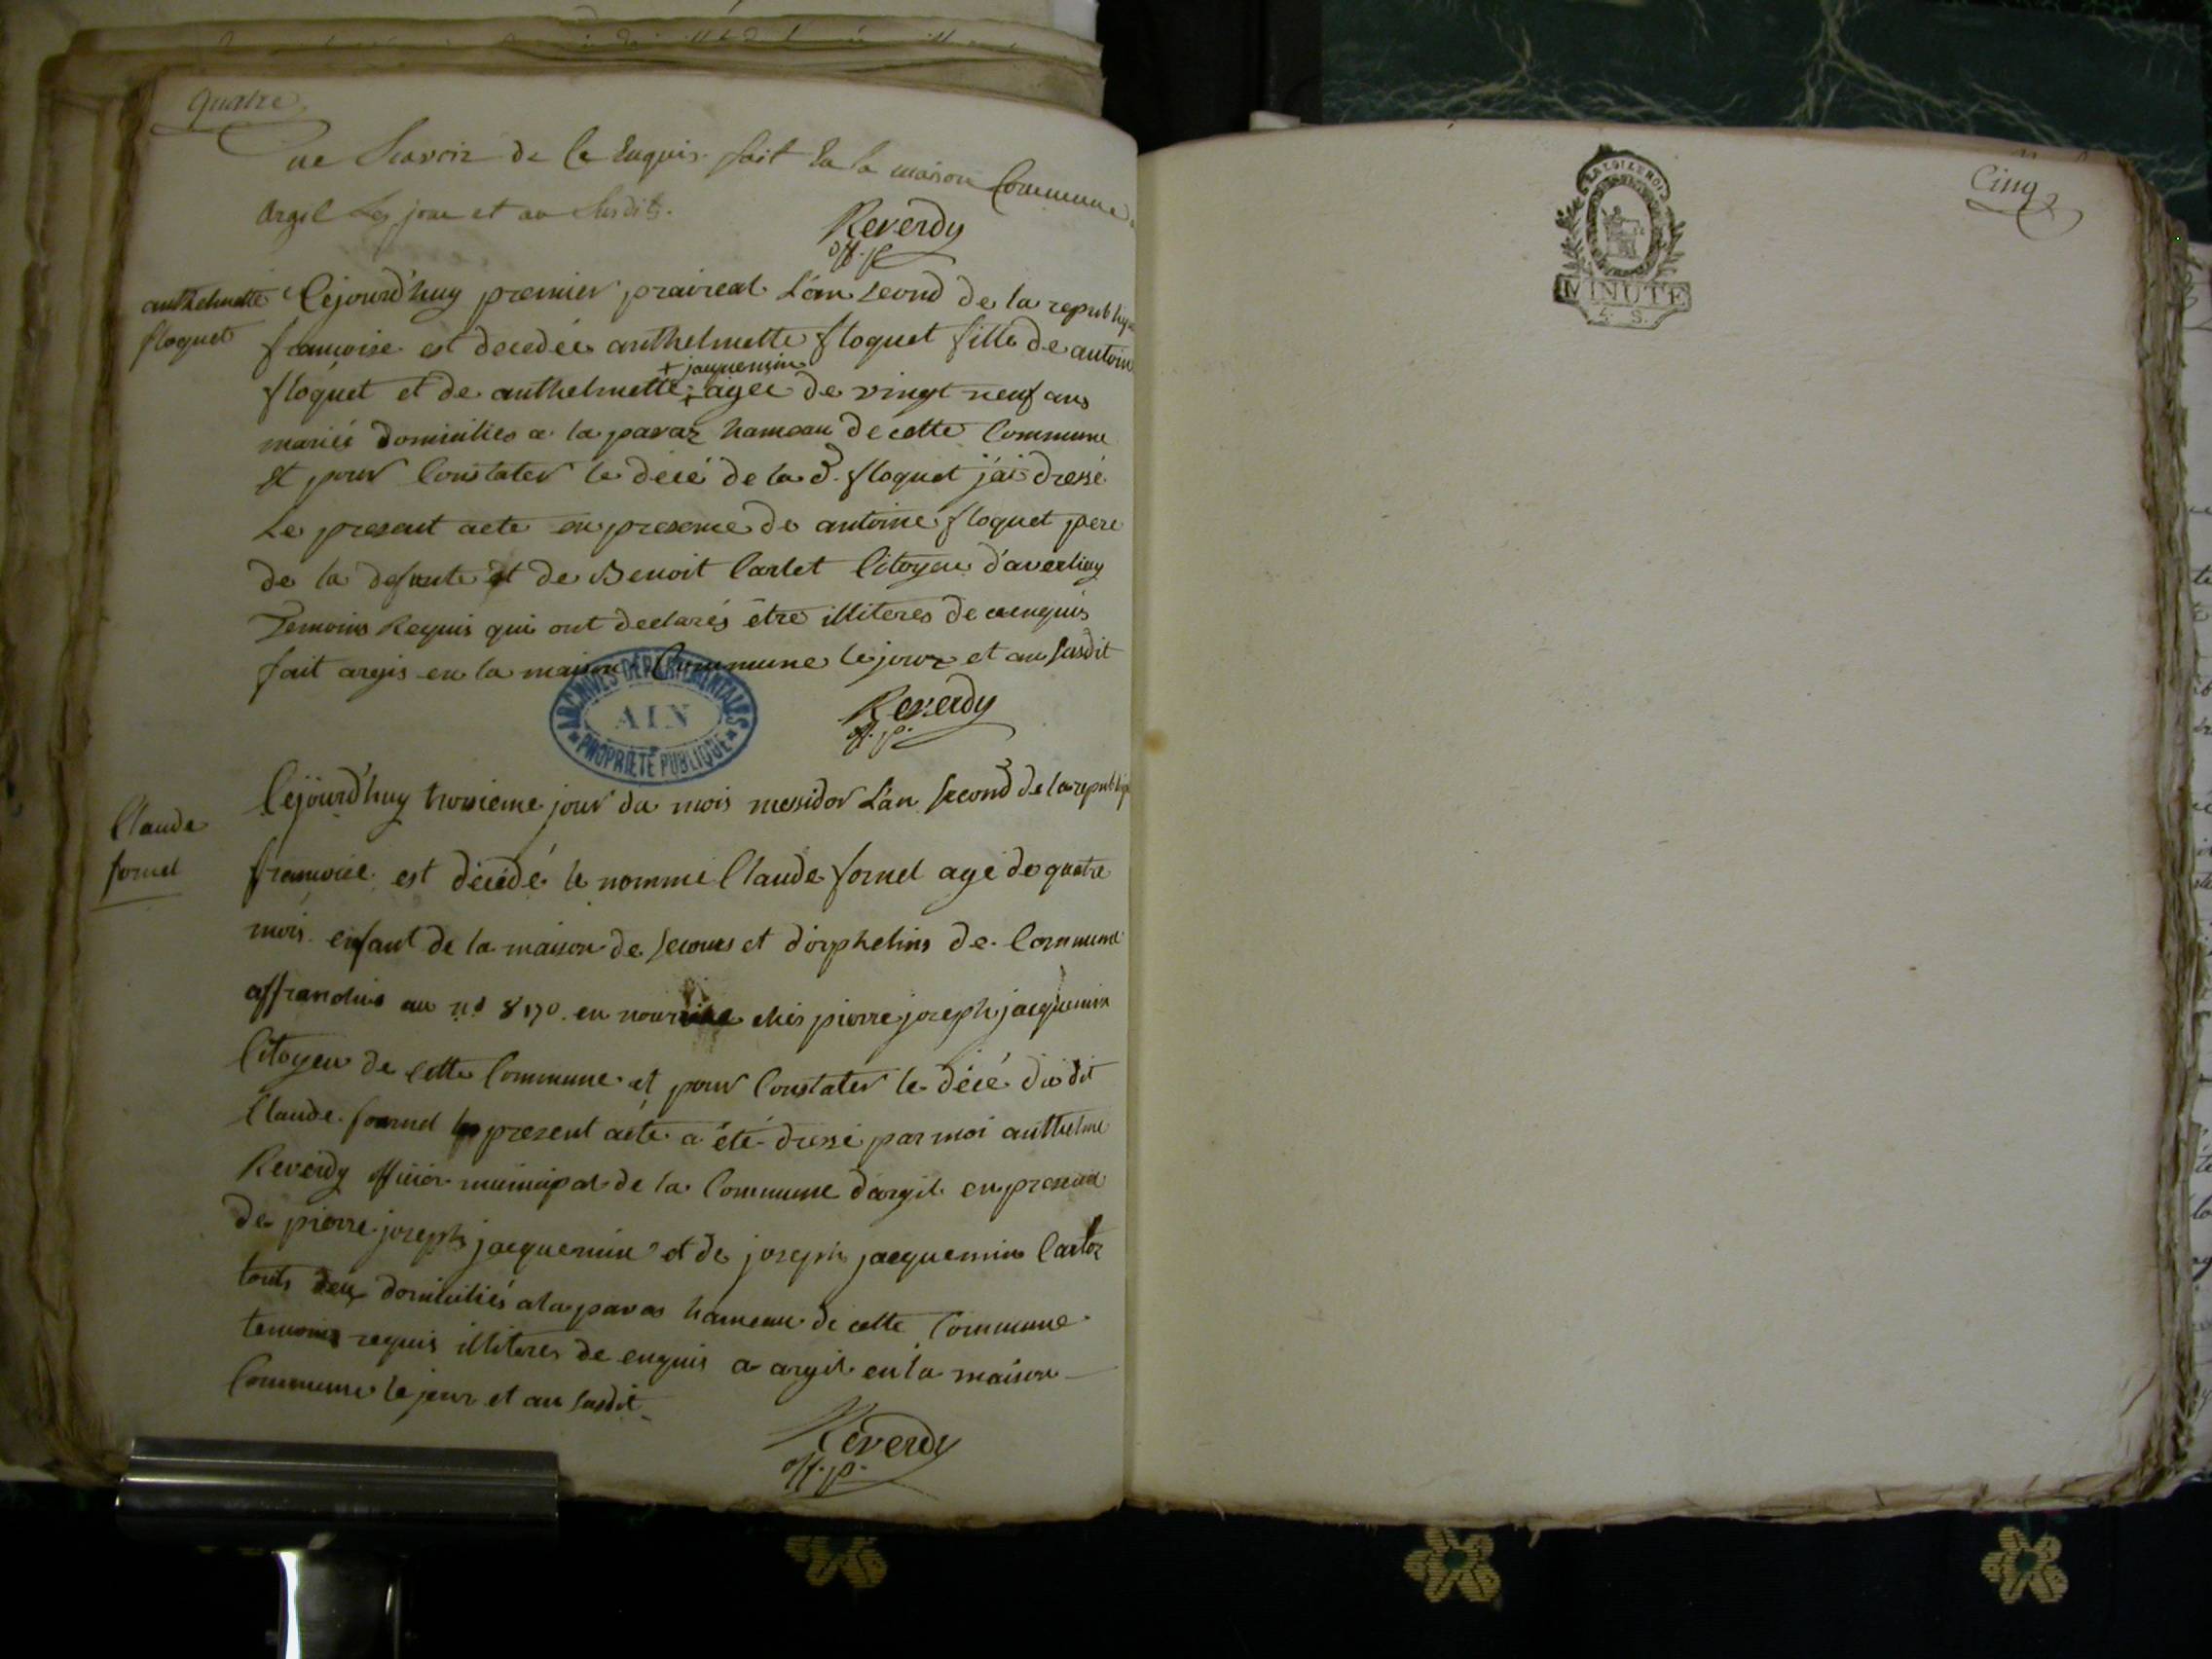 quatre
ne Scavoir de ce Enquis fait En la maison Commune
Argil Les jour et an Susdits.
Reverdy
off. p.
anthelmette
floquet
Cejourd'huy premier praireal L'an second de la republique
francoise est decedée anthelmette floquet fille de antoine
+ jaquemin
floquet et de anthelmette + agée de vingt neuf ans
mariée domiciliés a la pavaz hameau de cette Commune
et pour Constater le décé de la d. floquet j'ai dressé
Le present acte en presence de antoine floquet pere
de la defunte et de Benoit Carlet Citoyen d'averliay
Temoins Requis qui ont declarés être illiteres de ce enquis
fait argis en la maison Commune le jour et an susdit
ARCHIVES DÉPARTEMENTALES
AIN
PROPRIÉTÉ PUBLIQUE
Reverdy
off. p.
Claude
fornel
Cejourd'huy troisieme jour du mois messidor L'an second de la republique
francoise est décédé le nommé Claude fornel agé de quatre
mois enfant de la maison de secours et d'orphelins de Commune
affranchie au n.o 8170. en nourrice chés pierre joseph jacquemin
Citoyen de cette Commune et pour Constater le décé du dit
Claude fournel le present acte a été dressé par moi anthelme
Reverdy officier municipal de la Commune d'argil en presence
de pierre joseph jacquemin et de joseph jacquemin Carloz
touts deux domiciliés a la pavas hameau de cette Commune
temoins requis illiteres de enquis a argil en la maison
Commune le jour et an susdit
Reverdy
off. p.
LA LOI LE ROI
MINUTE
4. S.
Cinq